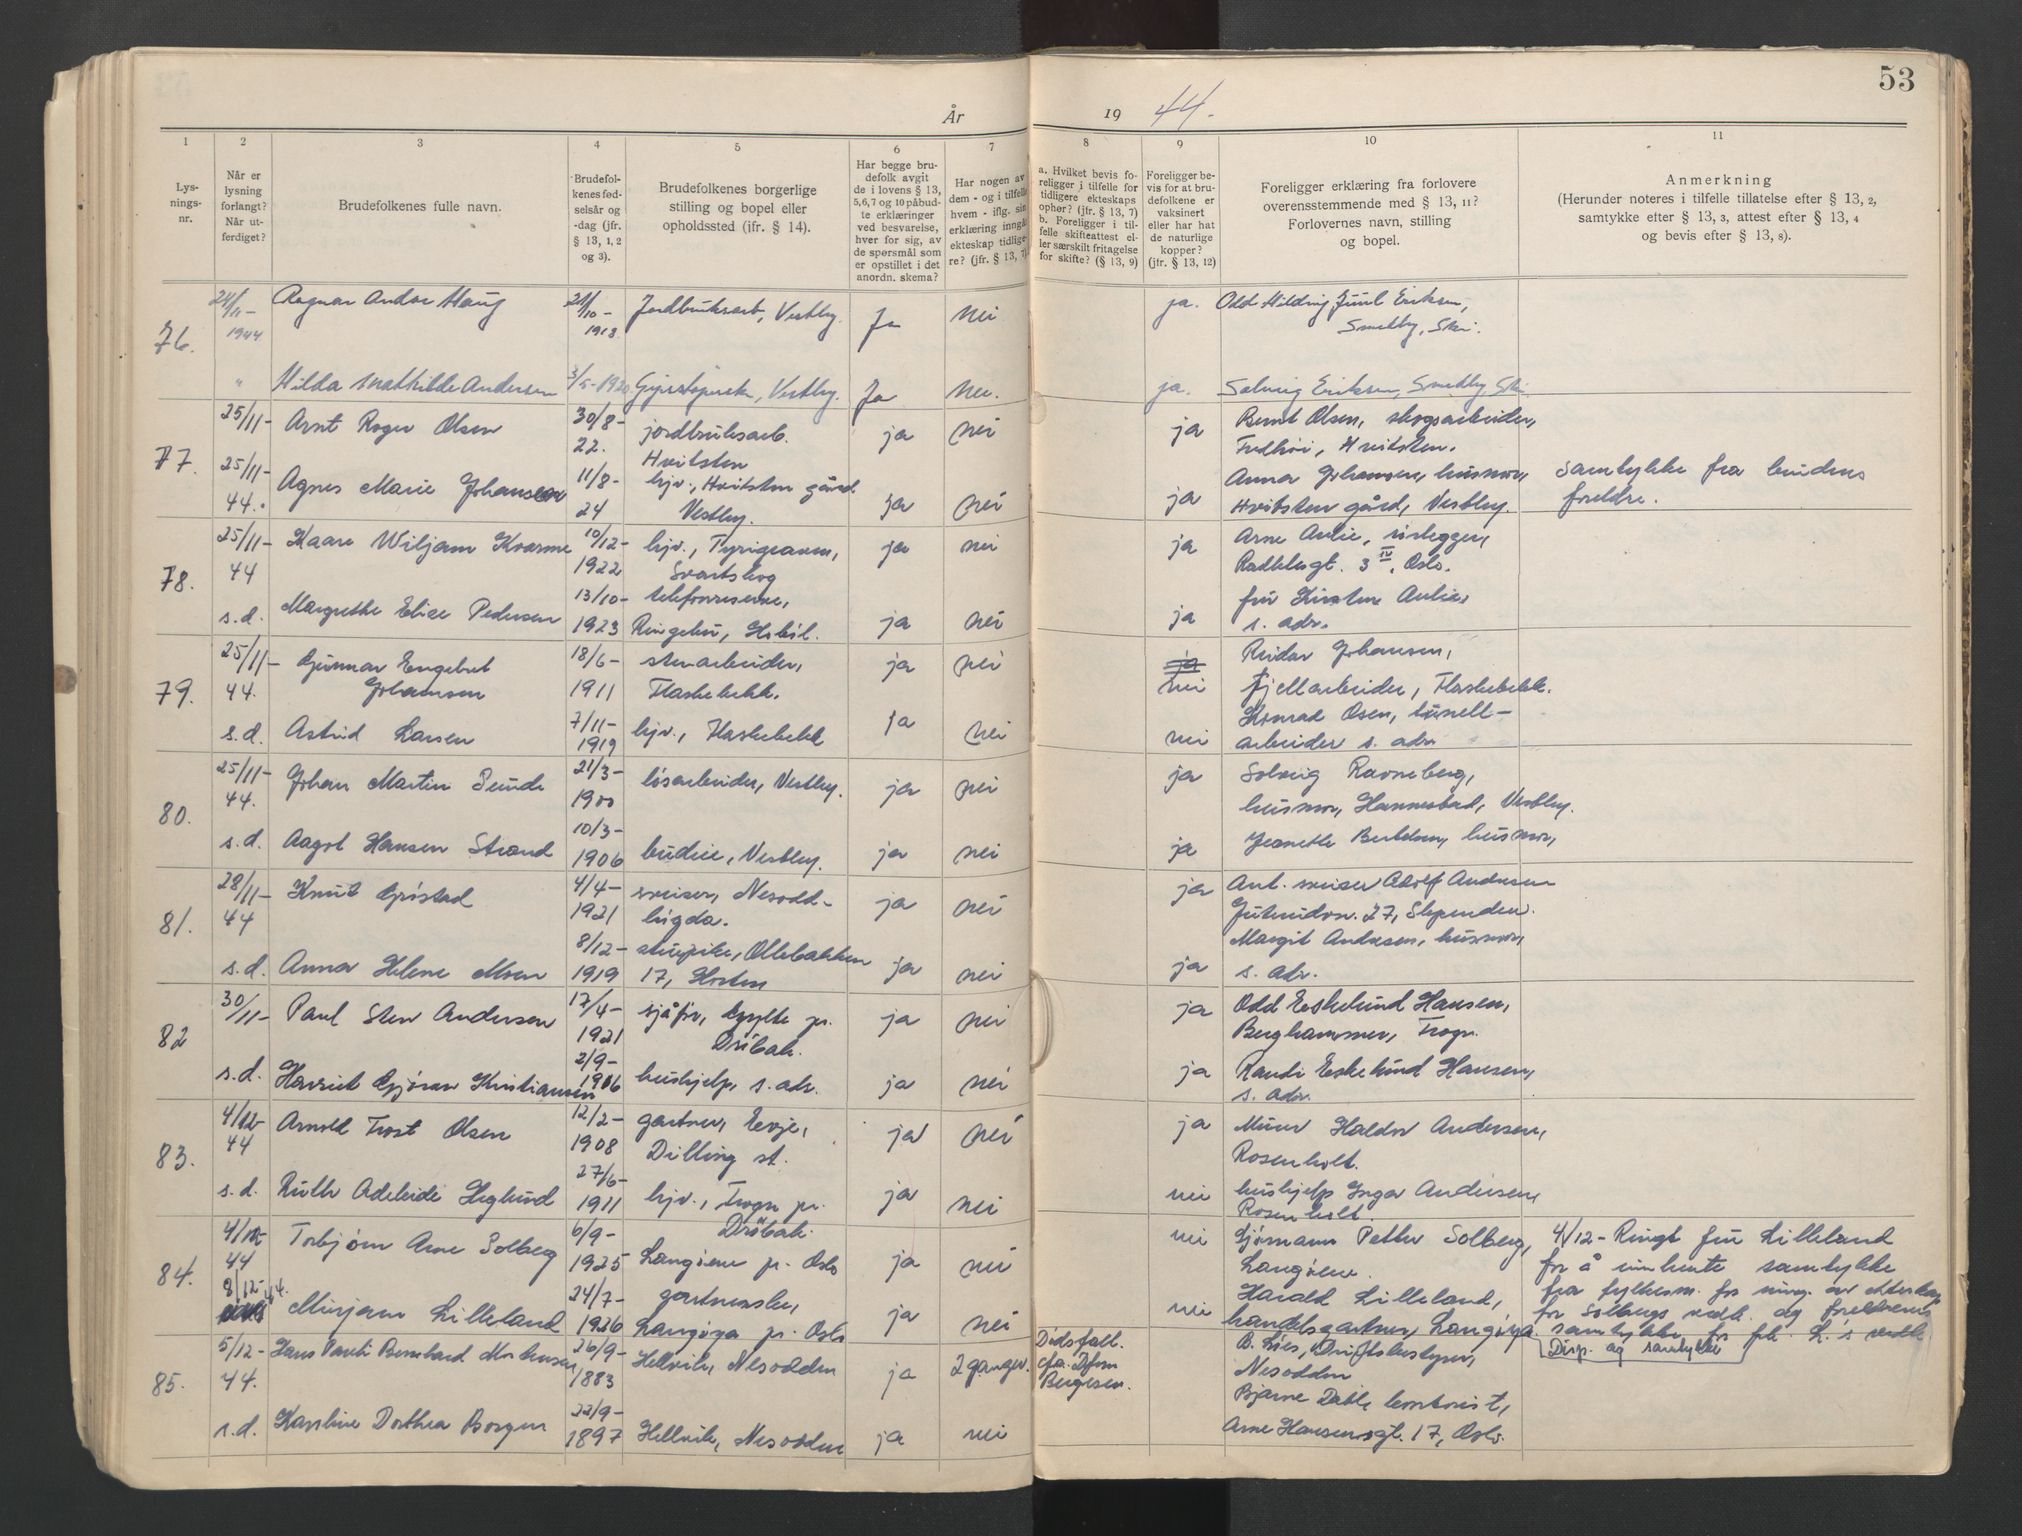 53
År 19 44.
1 2 3 4 5 6 7 8 9 10 11
Lys-
nings-
nr.
Når er
lysning
forlangt?
Når ut-
ferdiget?
Brudefolkenes fulle navn.
Brudefol-
kenes fød-
selsår og
-dag (jfr.
§ 13, 1, 2
og 3).
Brudefolkenes borgerlige
stilling og bopel eller
opholdssted (ifr. § 14).
Har begge bru-
defolk avgit
de i lovens § 13,
5,6,7 og 10 påbud-
te erklæringer
ved besvarelse,
hver for sig, av
de spørsmål som
er opstillet i det
anordn. skema?
Har nogen av
dem - og i tilfelle
hvem - iflg. sin
erklæring inngått
ekteskap tidlige-
re? (jfr. § 13, 7)
a. Hvilket bevis fo-
religger i tilfelle for
tidligere ekteskaps
ophør? (jfr. § 13, 7)
b. Foreligger i til-
felle skifteattest el-
ler særskilt fritagelse
for skifte? (§ 13, 9)
Foreligger be-
vis for at bru-
defolkene er
vaksinert
eller har hat
de naturlige
kopper?
(jfr. § 13, 12)
Foreligger erklæring fra forlovere
overensstemmende med § 13, 11?
Forlovernes navn, stilling
og bopel.
Anmerkning
(Herunder noteres i tilfelle tillatelse efter § 13, 2,
samtykke efter § 13, 3, attest efter § 13, 4
og bevis efter § 13, 8).
76. 24/11-1944 Ragnar Andor Haug 21/10-1913 Jordbruksarb, Vestby. Ja Nei ja. Odd Hilding Juul Eriksen,
Smedby, Ski.
" Hilda Mathilde Andersen 3/5-1920 Vestby. Ja Nei. ja. Solveig Eriksen, Smedby, Ski.
77. 25/11- Arnt Roger Olsen 30/8-22. jordbruksarb. Hvitsten ja nei ja Bernt Olsen, skogsarbeider,
Hvitsten.
25/11-44. Agnes Marie Johansen 11/8-24 hjv., Hvitsten gård Vestby. ja nei ja Anna Johansen, husmor,
Hvitsten gård, Vestby.
samtykke fra brudens
foreldre.
78. 25/11-44 Kaare Wiljam Kvarme 10/12-1922 hjv., Tyrigraven, Svartskog ja nei ja Arne Aulie, rørlegger,
3 IV, Oslo.
s.d. Margrethe Elise Pedersen 13/10-1923 Ringebu, Hobøl. ja nei ja fru Kirsten Aulie,
s. adr.
79. 25/11-44. Gunnar Engebret
Johansen 18/6-1911 stenarbeider, Flaskebekk. ja nei ja nei Reidar Johansen,
fjellarbeider, Flaskebekk.
s.d. Astrid Larsen 7/11-1919 hjv., Flaskebekk ja nei nei Konrad Osen, tunell-
arbeider s. adr.
80. 25/11-44. Johan Martin 21/3-1900 løsarbeider, Vestby. ja nei ja Solveig Ravneberg,
husmor, Vestby.
s.d. Aagot Hansen Strand 10/3-1906 budeie, Vestby. ja nei ja Jeanette Bertelsen, husmor,
81. 28/11-44 Knut Gjøstad 4/4-1921 sveiser, Nesodd-
bygda. ja nei ja Ant. sveiser Adolf Andersen
27, Slependen.
s.d. Anna Helene Moen 8/12-1919 stuepike, Ollebakken
17, Horten ja nei ja Margit Andersen, husmor,
s. adr.
82 30/11- Paul Sten Andersen 17/4-1921 sjåfør, pr. Drøbak. ja nei ja Odd Eskelund Hansen,
Berghammer, Frogn.
s.d. Harriet Gjøran Kristiansen 2/9-1916 hushjelp, s. adr. ja nei ja Randi Eskelund Hansen,
s. adr.
83. 4/12-44 Arnold Trost Olsen 12/2-1908 gartner, Evje,
Dilling st. ja nei ja Murer Haldor Andersen,
Rosenholt.
s.d. Ruth Adeleide Heglund 27/6-1911 hjv., Frogn pr.
Drøbak. ja nei nei hushjelp Inga Andersen,
Rosenholt.
84. 4/12-44 Torbjørn Arne Solberg 6/9-1925 Langøene pr. Oslo ja nei nei Sjømann Petter Solberg,
Langøene.
8/12-44. Mirjam Lilleland 24/7-1926 gartnerske,
Langøya pr. Oslo ja nei nei Harald Lilleland,
handelsgartner, Langøya.
4/12 - Ringt fru Lilleland
for å innhente samtykke
fra fylkesm. for
for Solbergs vedk. og foreldrenes
samtykke for frk. L.'s vedk.
Disp. og samtykke
85. 5/12-44. Hans Pauli Bernhard Mortensen, 26/9-1883 Hellvik, Nesodden ja 2 ganger. Dødsfall.
Bergesen. Driftsbestyrer,
Nesodden
s.d. Karoline Dorthea Borgen 22/9-1897 Hellvik, Nesodden ja nei Bjarne Dahl, kontorist,
Arne Hansensgt. 17, Oslo.